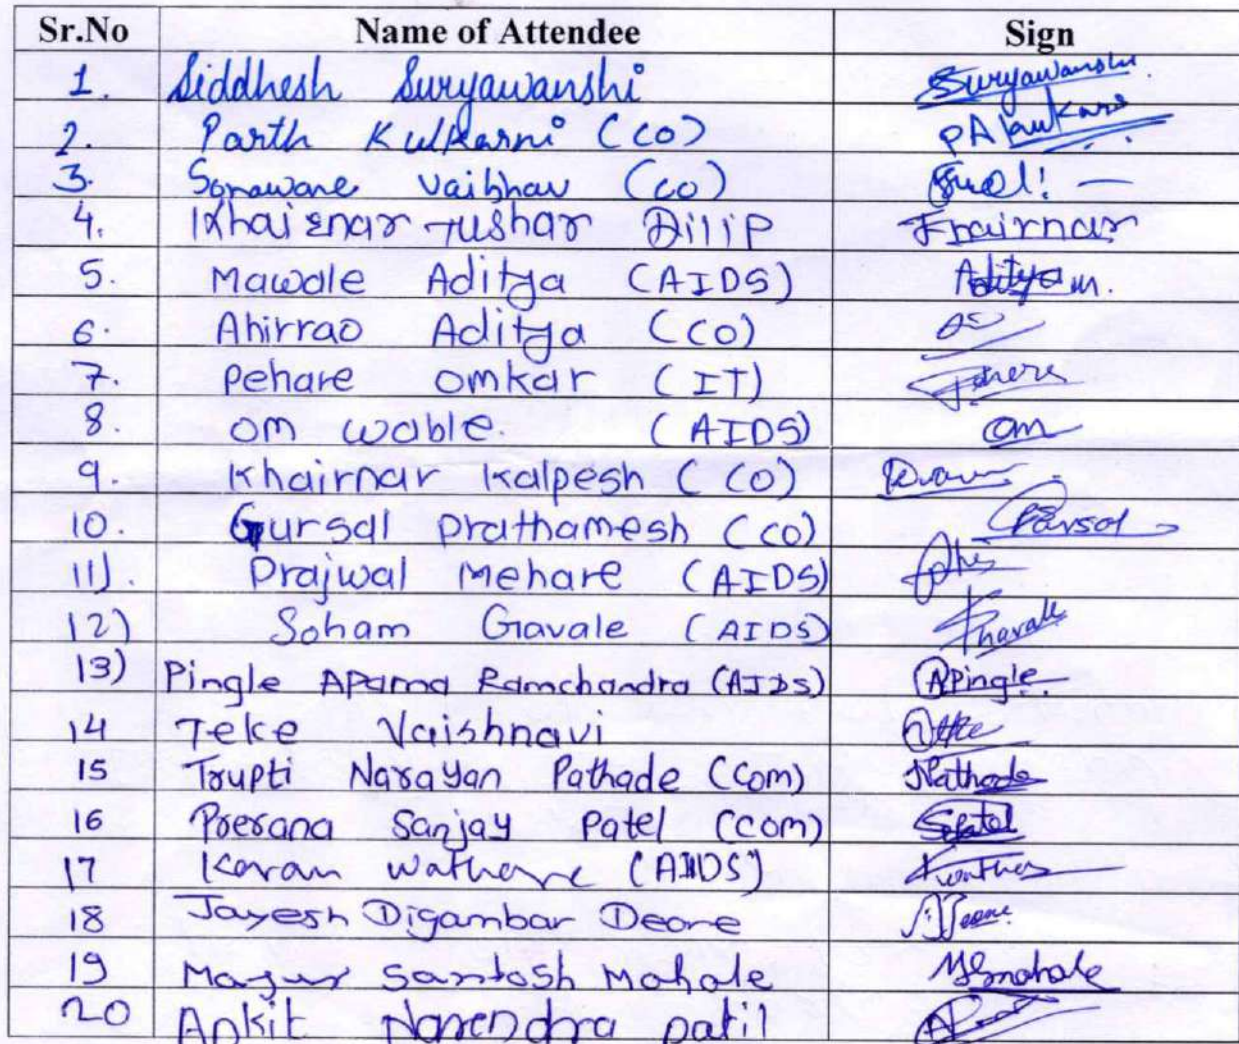 Sr.No Name of Attendee Sign
1. Siddhesh Suryawanshi Suryawanshi
2. Parth Kulkarni (CO)
3. Sonawane Vaibhav (CO)
4. Khairnar Tushar Dilip Tkhairnar
5. Mawale Aditya (AIDS) Aditya m.
6. Ahirrao Aditya (CO)
7. Pehare omkar (IT)
8. om wable. (AIDS) om
9. Khairnar Kalpesh (CO)
10. Gursal Prathamesh (CO)
11). Prajwal Mehare (AIDS)
12) Soham Gavale (AIDS)
13) Pingle Aparna Ramchandra (AIDS) APingle
14 Teke Vaishnavi
15 Trupti Narayan Pathade (Com) Pathade
16 Prerana Sanjay Patel (Com) Spatel
17 Karan Wathare (AIDS)
18 Jayesh Digambar Deore
19 Mayur Santosh Mahale MSmahale
20 Ankit Narendra patil